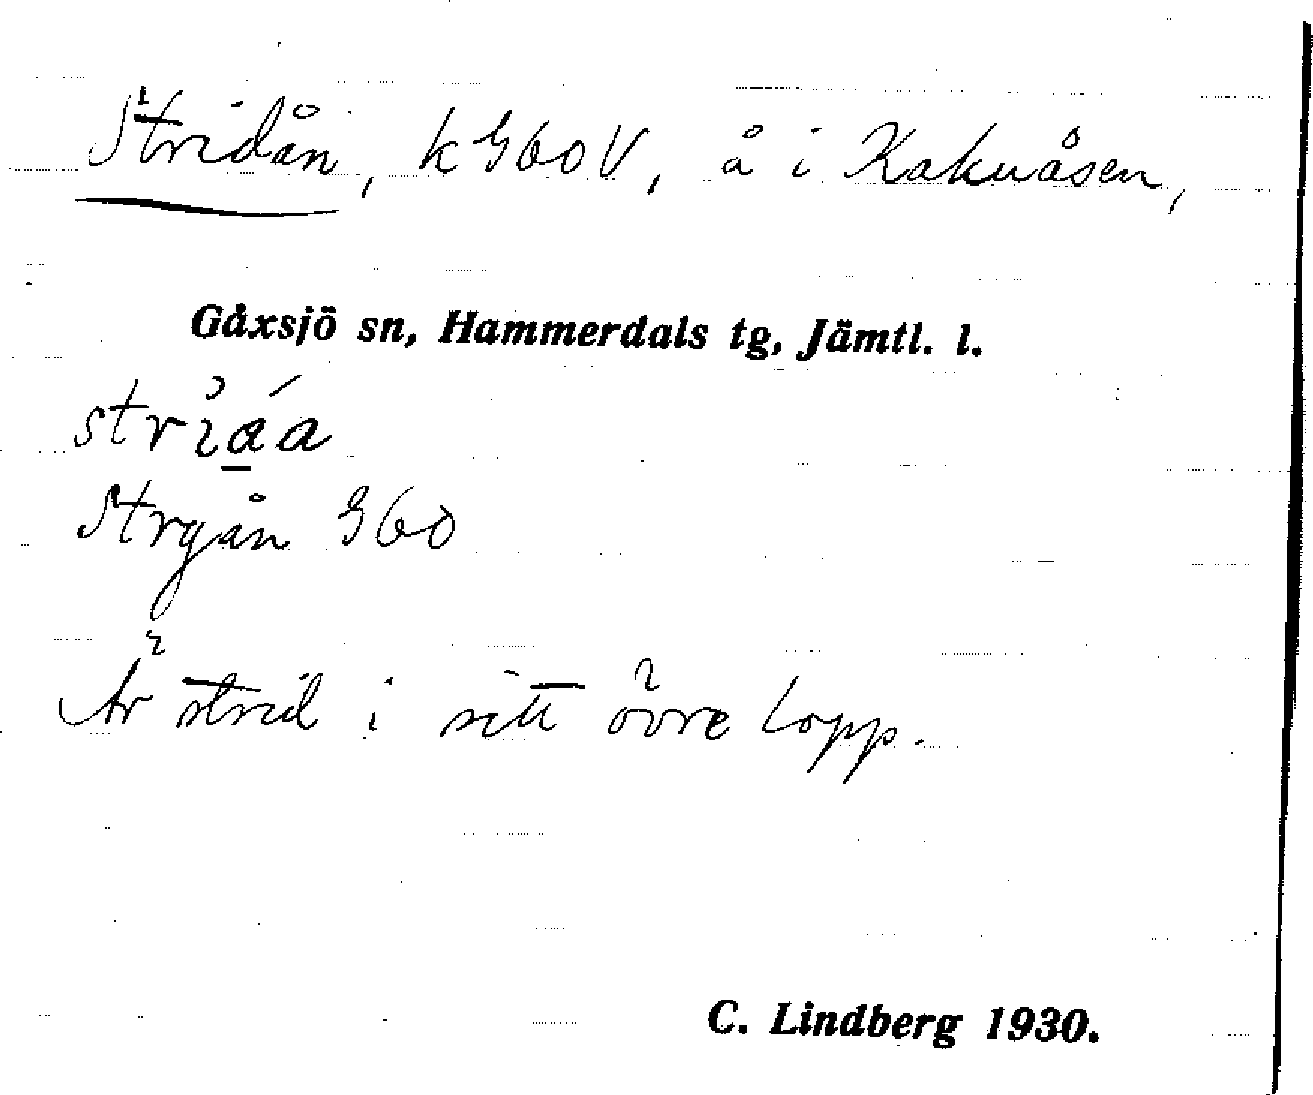 Stridån, k G60V, å i Kakuåsen,
Gåxsjö sn, Hammerdals tg, Jämtl. l.
striáa
Stryån G60
Är strid i sitt övre lopp.
C. Lindberg 1930.